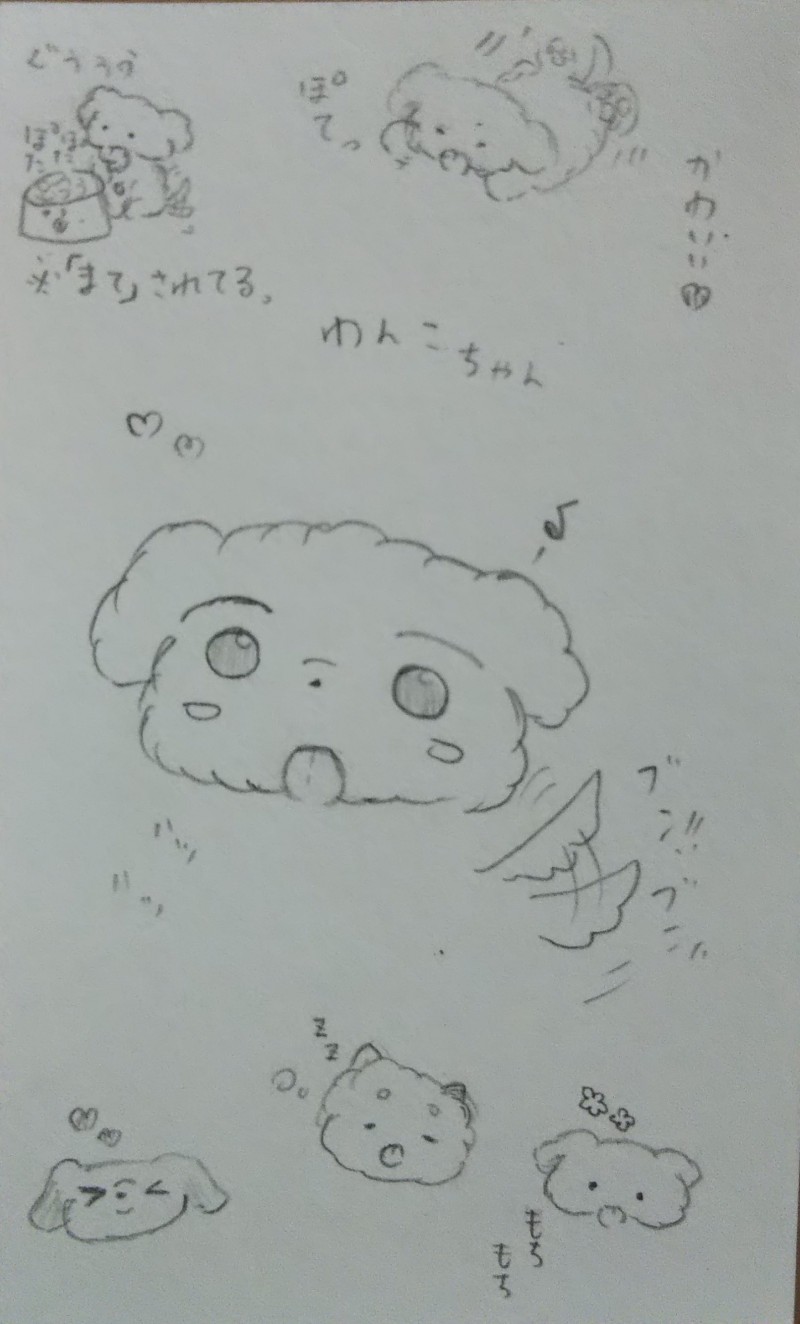 ぐぅぅぅ
ぽた
ぽた
※「まて」されてる。
ぽ
て。
かわいい♡
わんこちゃん
♡♡
♪
ブン
ブン
パッ
パッ
zz
♡♡
もち
もち